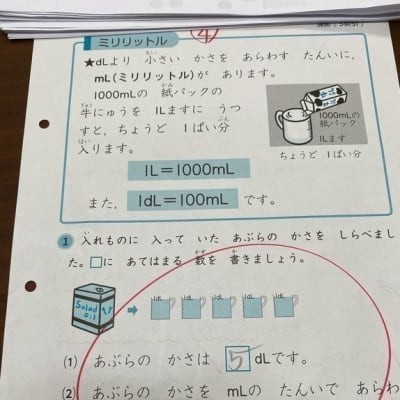 ④
ミリリットル
★dLより 小さい かさを あらわす たんいに,
mL(ミリリットル)が あります。
1000mLの 紙パックの
牛にゅうを 1Lますに うつ
すと, ちょうど 1ぱい分
入ります。
1000mLの
紙パック
1Lます
ちょうど 1ぱい分
1L=1000mL
また, 1dL=100mL です。
1 入れものに 入って いた あぶらの かさを しらべまし
た。□に あてはまる 数を 書きましょう。
Salad
Oil
1dL 1dL 1dL 1dL 1dL
(1) あぶらの かさは 5 dLです。
(2) あぶらの かさを mLの たんいで あらわ